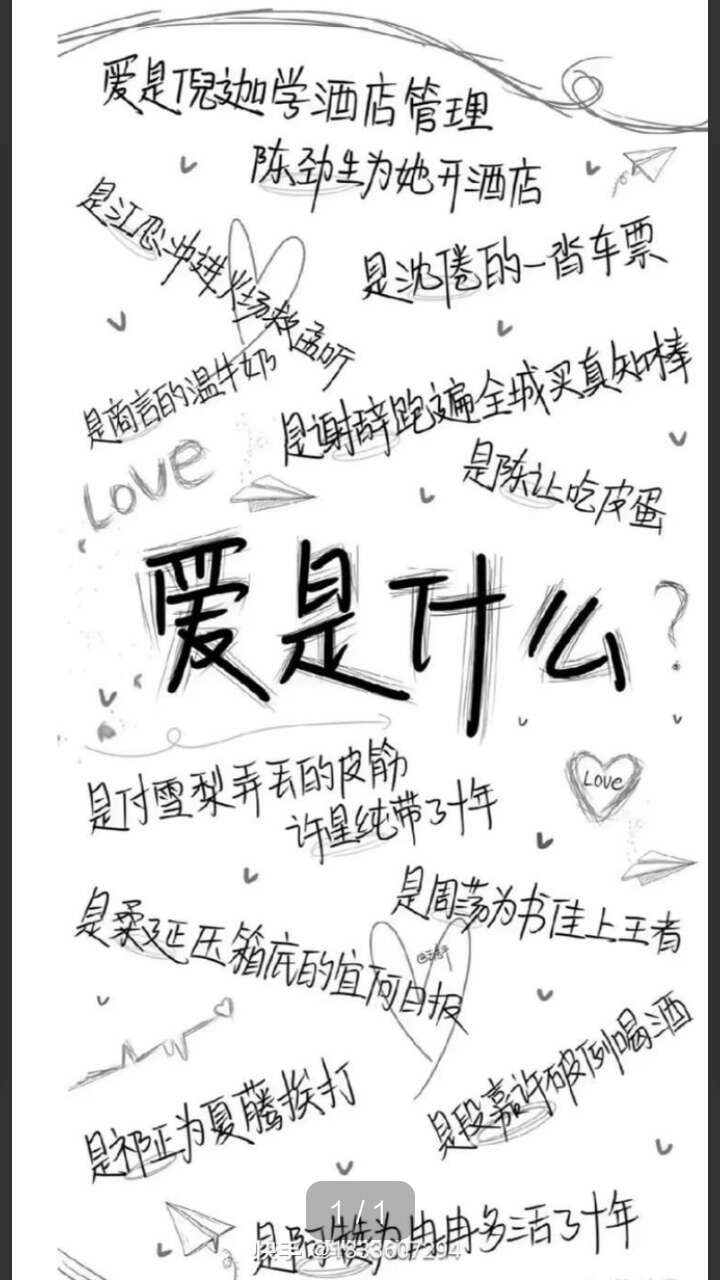 爱是倪迦学酒店管理
陈劲生为她开酒店
是江忍冲进火场救孟听
是沈倦的一沓车票
是商言的温牛奶
是谢辞跑遍全城买真知棒
Love
是陈让吃皮蛋
爱是什么?
是付雪梨弄丢的皮筋
许星纯带了十年
Love
是周荡为书佳上王者
是柔延压箱底的宜阿日报
是祁正为夏藤挨打
是段嘉许破例喝酒
1/1
是阿赞为冉冉多活了十年
快手 @1833607294